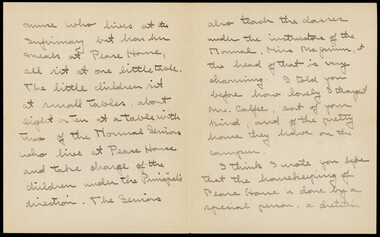 nurse who lives at the
Infirmary but has her
meals at Pease House,
all sit at one little table.
The little children sit
at small tables, about
eight or ten at a table with
two of the Normal Seniors
who live at Pease House
and take charge of the
children under the Principal's
direction. The Seniors
also teach the classes
under the instructors of the
Normal. Miss at
the head of that is very
charming. I told you
before how lovely I thought
Mrs. Calfee, sort of your
kind, and of the pretty
home they have on the
campus.
I think I wrote you before
that the housekeeping of
Pease House is done by a
special person, a dietitian